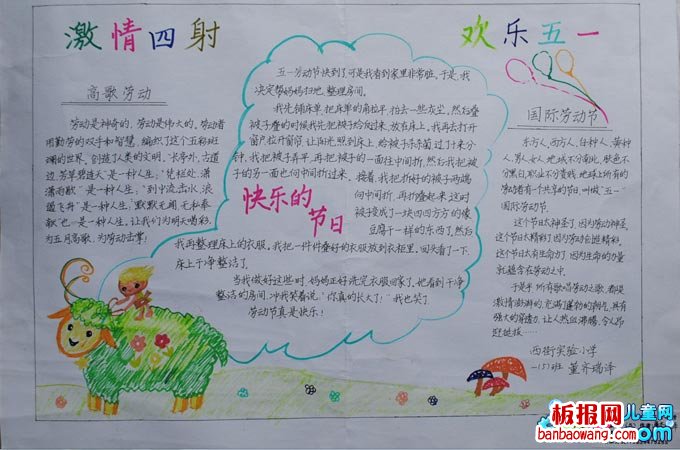 激情四射
欢乐五一
高歌劳动
劳动是神奇的,劳动是伟大的。劳动者
用勤劳的双手和智慧,编织了这个五彩斑
斓的世界,创造了人类的文明。"长亭外,古道
边,芳草碧连天"是一种人生;"凭栏处,潇
潇雨歇"是一种人生;"到中流击水,浪
遏飞舟"是一种人生;"默默无闻,无私奉
献"也是一种人生,让我们为明天喝彩,
为五月高歌,为劳动击掌!
五一劳动节快到了,可是我看到家里非常脏。于是,我
决定帮妈妈扫地,整理房间。
我先铺床单,把床单的角拉平,拍去一些灰尘。然后叠
被子,叠的时候我先把被子给反过来,放在床上。我再去打开
窗户拉开窗帘,让阳光照到床上,给被子杀杀菌,过了十来分
钟,我把被子弄平,再把被子的一面往中间折,然后我把被
子的另一面也向中间折过来,接着,我把折好的被子两端
向中间折,再折叠起来,这时
被子变成了一块四四方方的像
豆腐干一样的东西了。然后
快乐的
节日
我再整理床上的衣服。我把一件件叠好的衣服放到衣柜里。回头看了一下,
床上干净整洁了。
当我做好这些时,妈妈正好洗完衣服回来了,她看到干净
整洁的房间,冲我笑着说:"你真的长大了!"我也笑了
劳动节真是快乐!
国际劳动节
东方人,西方人,白种人,黄种
人,男人,女人,地域不分南北,肤色不
分黑白,职业不分贵贱,地球上所有的
劳动者有个共享的节日,叫做"五一"
国际劳动节。
这个节日太神圣了,因为劳动神圣,
这个节日太精彩了,因为劳动创造精彩,
这个节日太有生命力了,因为生命的力量
就蕴含在劳动之中。
于是乎,所有歌唱劳动之歌,都是
激情澎湃的,充满了蓬勃的朝气,具有
强大的穿透力,让人热血沸腾,令人昂
扬挺拔……
西街实验小学
一(5)班 董齐瑞泽
儿童网
板报网
banbaowang.com